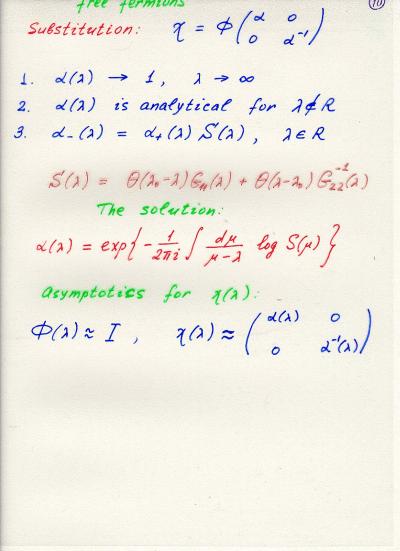 free fermions
10
Substitution: χ = Φ ( α 0
0 α⁻¹ )
1. α(λ) → 1, λ → ∞
2. α(λ) is analytical for λ∉R
3. α₋(λ) = α₊(λ) S(λ), λ∈R
S(λ) = Θ(λ₀-λ)G₁₁(λ) + Θ(λ-λ₀)G₂₂⁻¹(λ)
The solution:
α(λ) = exp{ - 1/2πi ∫ dμ/μ-λ log S(μ) }
Asymptotics for χ(λ):
Φ(λ) ≈ I, χ(λ) ≈ ( α(λ) 0
0 α⁻¹(λ) )